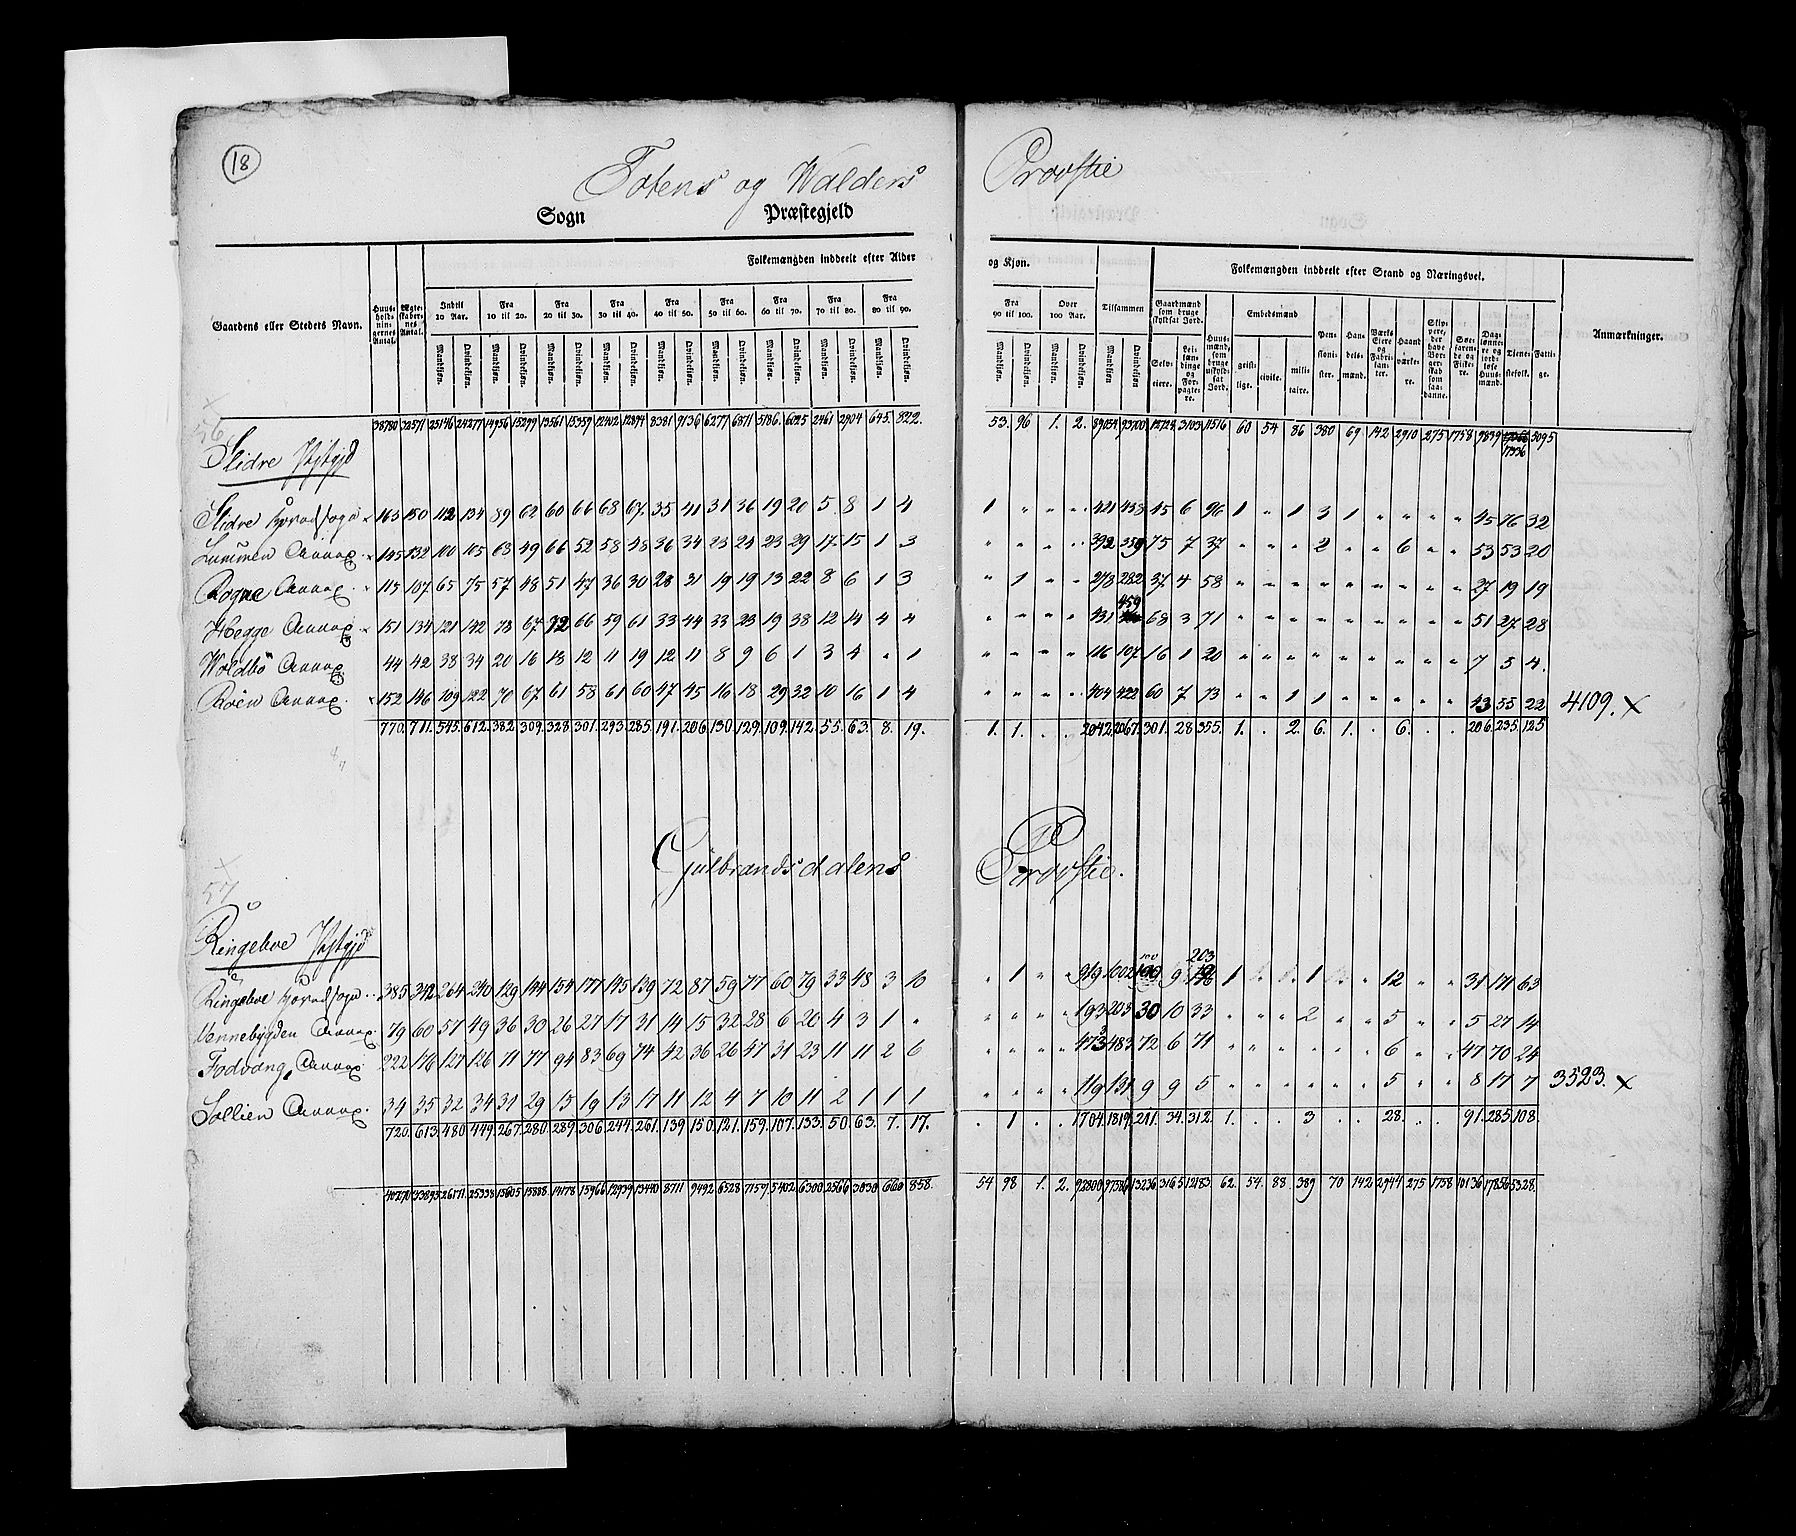 18
Totens og Walders Provstie
Sogn Præstegjeld
Gaardens eller Stedets Navn. Huus-holdningernes Antal. Ægteskabernes Antal. Folkemængden inddeelt efter Alder og Kjøn. Folkemængden inddeelt efter Stand og Næringsvei. Anmærkninger.
Indtil 10 Aar. Fra 10 til 20. Fra 20 til 30. Fra 30 til 40. Fra 40 til 50. Fra 50 til 60. Fra 60 til 70. Fra 70 til 80. Fra 80 til 90. Fra 90 til 100. Over 100 Aar. Tilsammen
Mandkjøn. Qvindekjøn.
Gaardmænd som bruge skyldsat Jord. Selv-eiere. Lei-lændinge og For-pagtere. Huus-mænd, som bruge uskyldsat Jord. Embedsmænd geist-lige. civile. mili-taire. Pen-sioni-ster. Han-dels-mænd. Værks Eiere og Fabri-kanter. Haand-værke-re. Søe-farende og Fiskere. Dag-lønne-re og jord-løse Huus-mænd. Tjene-stefolk. Fatti-ge.
38780 32571 25146 24277 14956 15299 13561 15359 12402 12894 8381 9136 6277 6871 5186. 6025 2461 2904 645. 822. 53. 96 1. 2. 89054 93700 12728 3103 11516 60 54 86 380 69 142 2910 275 1758 9839 17336 5095
56
Slidre Pstgjd
Slidre Hovedsogn 163 150 112 134 89 62 60 66 68 67 35 41 31 36 19 20 5 8 1 4 1 " " " 421 438 45 6 96 1 " 1 3 1 " " " " 45 76 32
Lummen Annex 145 132 100 105 68 49 66 52 58 48 36 34 23 24 23 29 17 15 1 3 " " " " 392 359 75 7 37 " " " 2 " " 6 " " 53 53 20
Rogne Annex 115 107 65 75 57 48 51 47 36 30 23 31 19 19 13 22 8 6 1 3 " 1 " " 273 282 37 4 58 " " " " " " " " " 27 19 19
Hegge Annex 151 134 121 142 78 67 72 66 59 61 33 44 33 23 19 38 12 14 4 4 " " " " 431 459 68 3 71 " " " " " " " " " 51 27 28
Woldbo Annex 44 42 38 34 20 16 13 12 11 19 12 11 8 9 6 1 3 4 " 1 " " " " 116 107 16 1 20 " " " " " " " " " 7 5 4.
Röen Annex 152 146 109 122 70 67 61 58 61 60 47 45 16 18 29 32 10 16 1 4 " " " " 404 422 60 7 73 " " 1 1 " " " " " 43 55 22 4109. X
770. 711. 545. 612. 382. 309. 328. 301. 293. 285. 191. 206. 130. 129. 109. 142. 55. 63. 8. 19. 1. 1. . . 2042. 2067. 301. 28 355. 1. . 2. 6. 1. . 6. . . 206. 235. 125
Gulbrandsdalens Provstie.
57
Ringeboe Pstgjd
Ringeboe Hovedsogn 385 342 264 240 129 144 154 177 145 139 72 87 59 77 60 79 33 48 3 10 " 1 " " 919 1002 100 9 203 1 " " 1 " " 12 " " 31 171 63
Vennebygden Annex 79 60 57 49 36 30 26 27 17 31 14 15 32 28 6 20 4 3 1 " " " " " 193 203 30 10 33 " " " 2 " " 5 " " 5 27 14
Fodvang Annex 222 176 127 126 71 77 94 83 69 74 42 36 26 47 31 23 11 11 2 6 " " " " 473 483 72 6 71 " " " " " " 6 " " 47 70 24
Sollien Annex 34 35 32 34 31 29 15 19 13 17 11 12 4 7 10 11 2 1 1 1 " " " " 119 131 9 9 5 " " " " " " 5 " " 8 17 7 3523. X
720. 613. 480 449. 267. 280. 289. 306. 244. 261. 139 150. 121. 159. 107. 133. 50. 63. 7. 17. . 1 . . 1704. 1819. 211. 34. 312. 1. . . 3 . . 28. . . 91. 285. 108.
40270 33895 26171 25338 15605 15888 14178 15966 12939 13440 8711 9492 6528 7159 5402 6300 2566 3030 660 858. 54 98 1. 2. 92800 97586 13236 3165 12183 62. 54. 88. 389 70 142 2944 275 1758 10136 17856 5328.